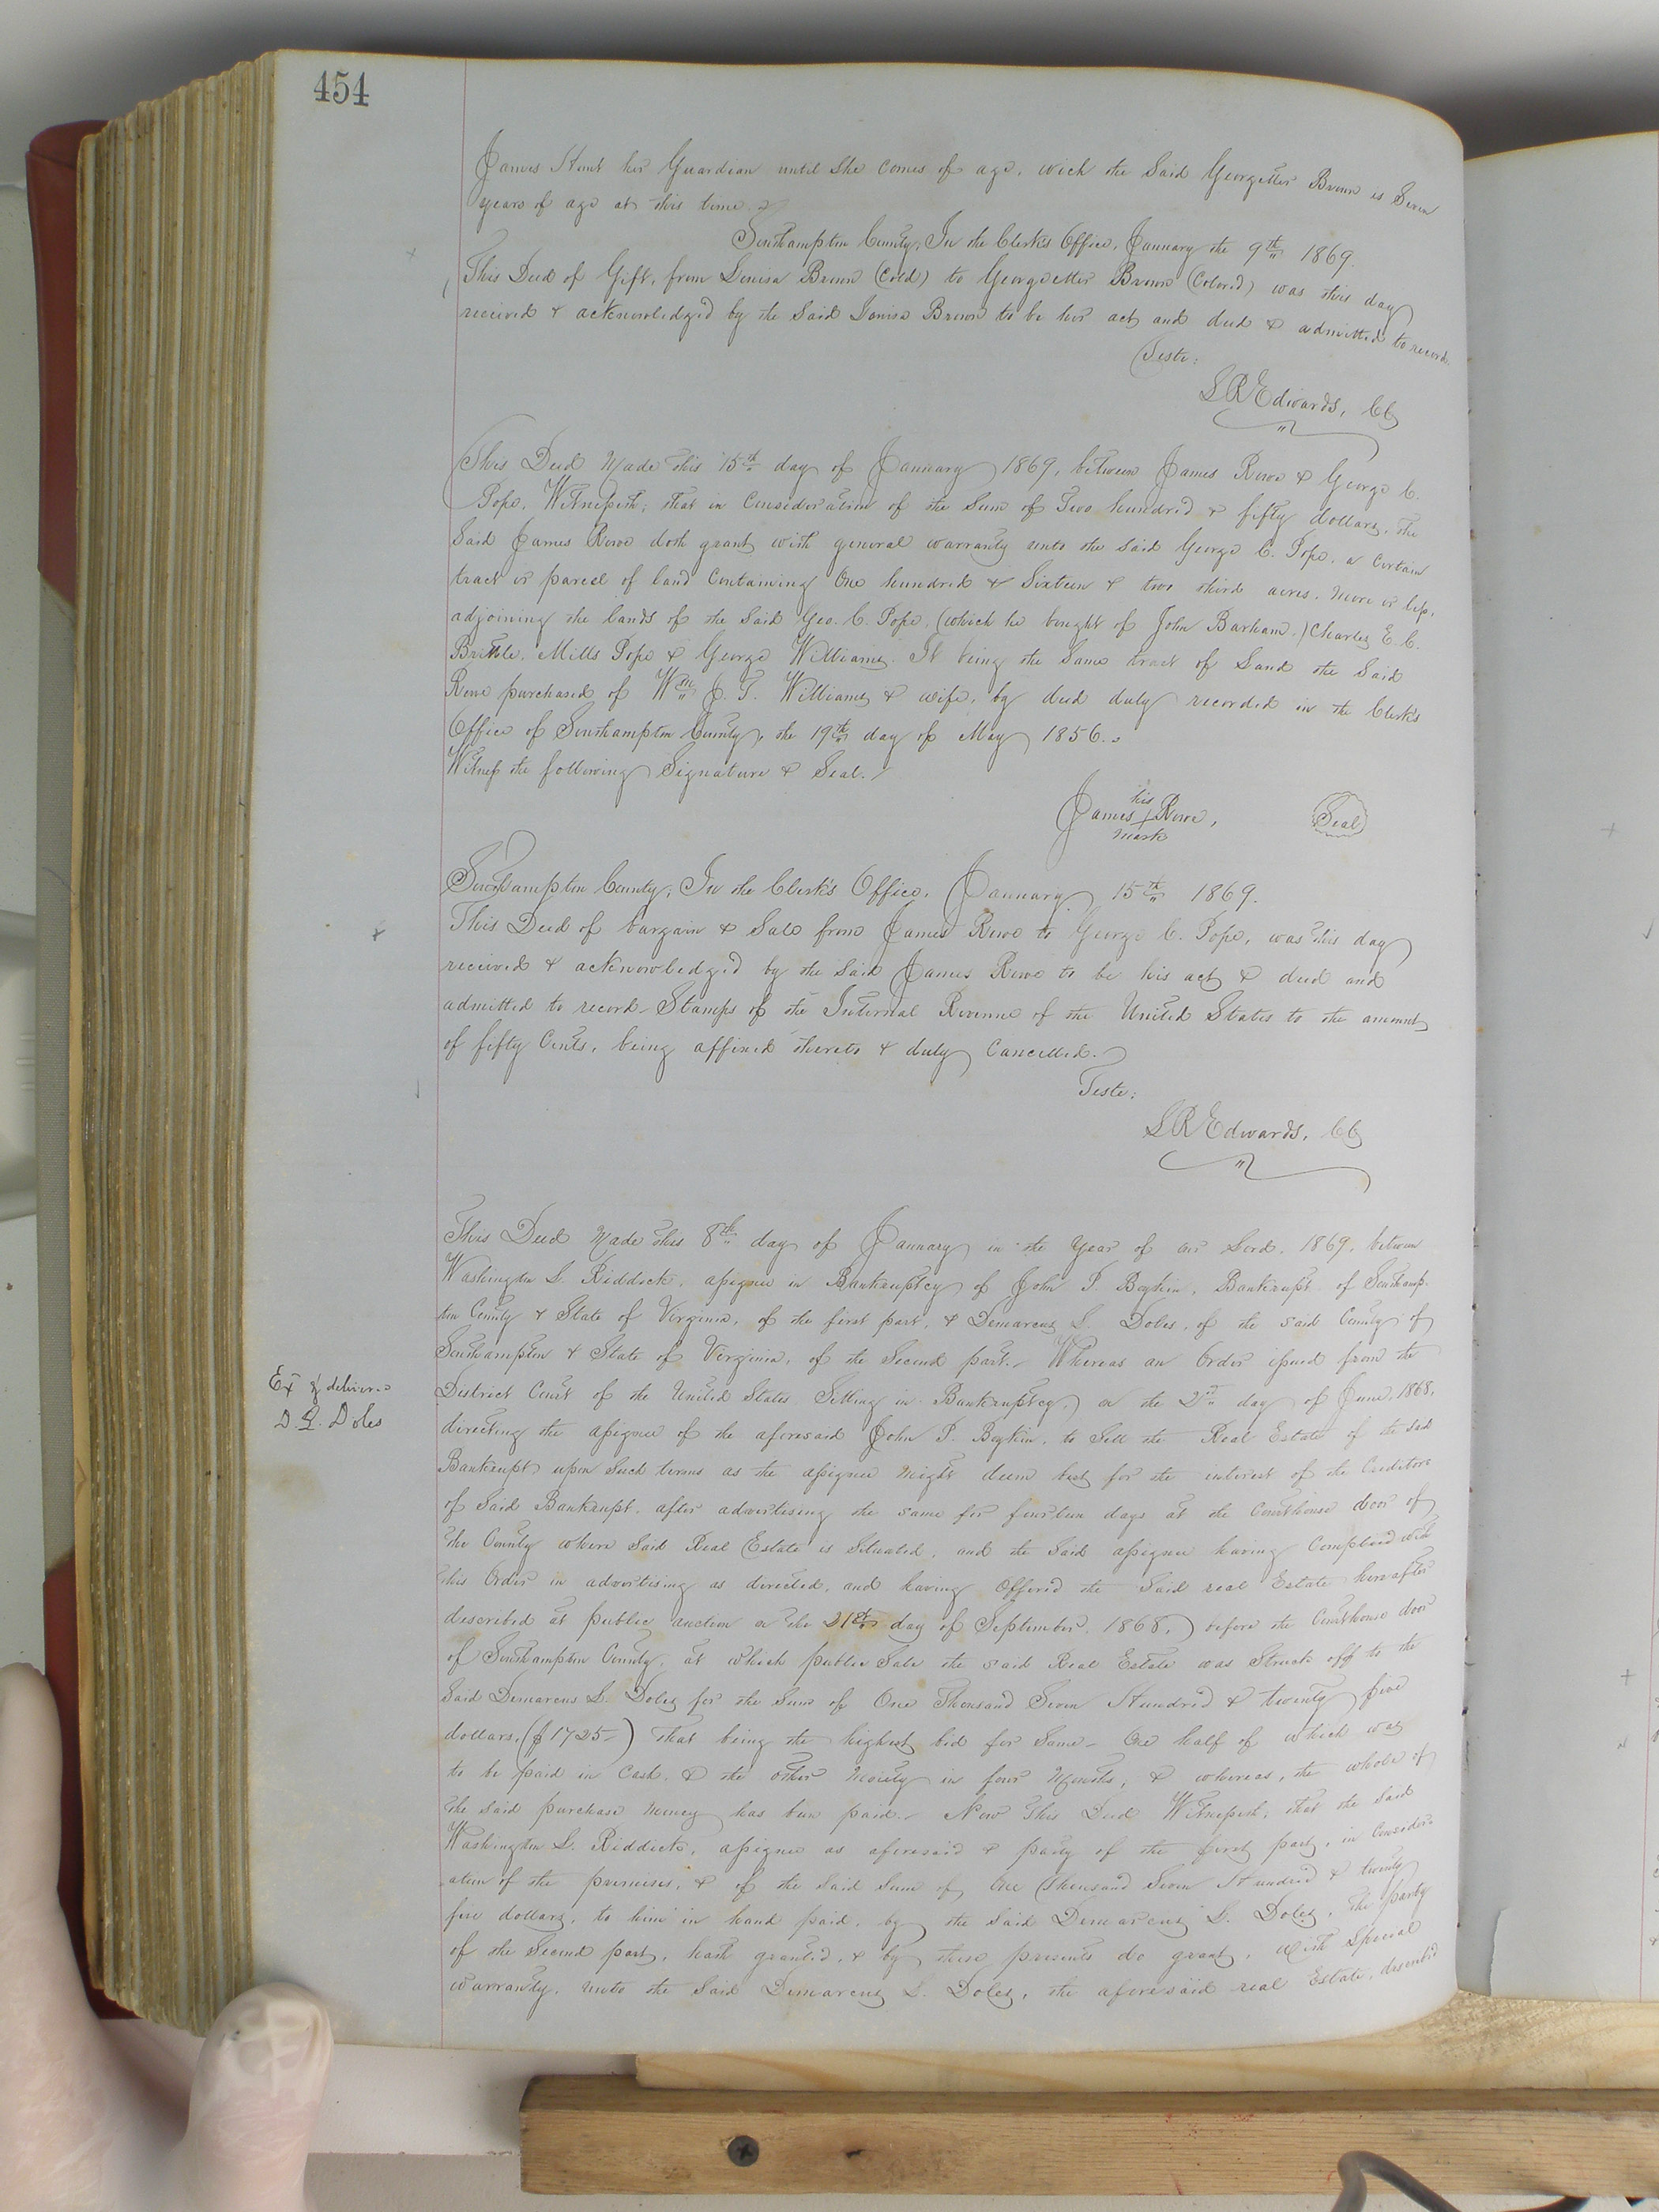 454
James Hunt her Guardian until She comes of age, wich the Said Georgetter Brown is Seven
years of age at this time.
Southampton County; In the Clerk's Office, January the 9th 1869.
This Deed of Gift, from Louisa Brown (Cold) to Georgetter Brown (Colored) was this day
received & acknowledged by the Said Louisa Brown to be her act and deed & admitted to record.
Teste:
L R Edwards, CC
This Deed Made this 15th day of January 1869, between James Rowe & George C.
Pope, Witnesseth; that in Consideration of the Sum of Two hundred & fifty dollars, the
Said James Rowe doth grant with general warranty unto the Said George C. Pope, a Certain
tract or parcel of land Containing One hundred & Sixteen & two third acres. More or less,
adjoining the lands of the Said Geo. C. Pope, (which he bought of John Barham.) Charles E. C.
Brittle, Mills Pope & George Williams. It being the Same tract of Land the Said
Rowe purchased of Wm J. T. Williams & wife, by deed duly recorded in the Clerk's
Office of Southampton County, the 19th day of May 1856.
Witness the following Signature & Seal.
his
James + Rowe, Seal
mark
Southampton County; In the Clerk's Office, January 15th 1869.
This Deed of bargain & Sale from James Rowe to George C. Pope, was this day
received & acknowledged by the Said James Rowe to be his act & deed and
admitted to record - Stamps of the Internal Revenue of the United States to the amount
of fifty Cents, being affixed thereto & duly Cancelled.
Teste:
L R Edwards, CC
This Deed Made this 8th day of January in the Year of our Lord, 1869, between
Washington L. Riddick, assignee in Bankruptcy of John T. Boykin, Bankrupt of Southamp-
ton County & State of Virginia, of the first part, & Demarcus L. Doles, of the said County of
Southampton & State of Virginia, of the Second part. Whereas an Order issued from the
Ex & deliver
D. L. Doles
District Court of the United States Sitting in Bankruptcy, on the 2nd day of June, 1868,
directing the assignee of the aforesaid John T. Boykin, to Sell the Real Estate of the said
Bankrupt upon Such terms as the assignee might deem best for the interest of the Creditors
of Said Bankrupt, after advertising the same for fourteen days at the Courthouse door of
the County where Said Real Estate is Situated, and the Said assignee having Complied with
this Order in advertising as directed, and having Offered the Said real Estate hereafter
described at public auction on the 21st day of September, 1868, before the Courthouse door
of Southampton County, at which public Sale the said Real Estate was Struck off to the
Said Demarcus L. Doles for the Sum of One Thousand Seven Hundred & twenty five
dollars, ($1725-) that being the highest bid for Same - One half of which was
to be paid in Cash, & the other Moiety in four Months, & whereas, the whole of
the said purchase money has been paid. - Now This Deed Witnesseth; that the said
Washington L. Riddick, assignee as aforesaid & party of the first part, in Consider-
ation of the premises, & of the Said Sum of One Thousand Seven Hundred & twenty
five dollars, to him in hand paid, by the Said Demarcus L. Doles, the party
of the Second part, hath granted, & by these presents do grant, with Special
warranty, unto the Said Demarcus L. Doles, the aforesaid real Estate, describd